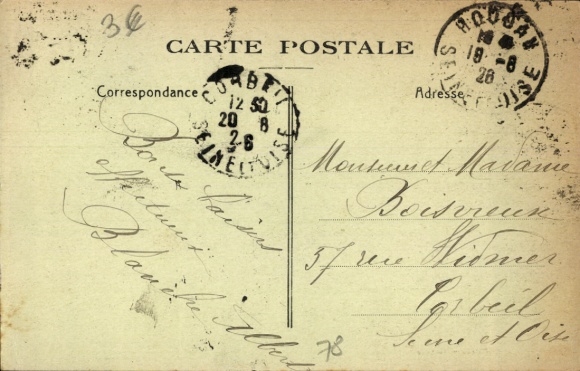 3€
CARTE POSTALE
Correspondance
Adresse
HOUDAN
19 -8
26
SEINE ET OISE
CORBEIL
12 50
20 8
26
SEINE ET OISE
Bons baisers
Blanche Albert
Monsieur et Madame
Boisvieux
57 rue Widmer
Corbeil
Seine et Oise
78